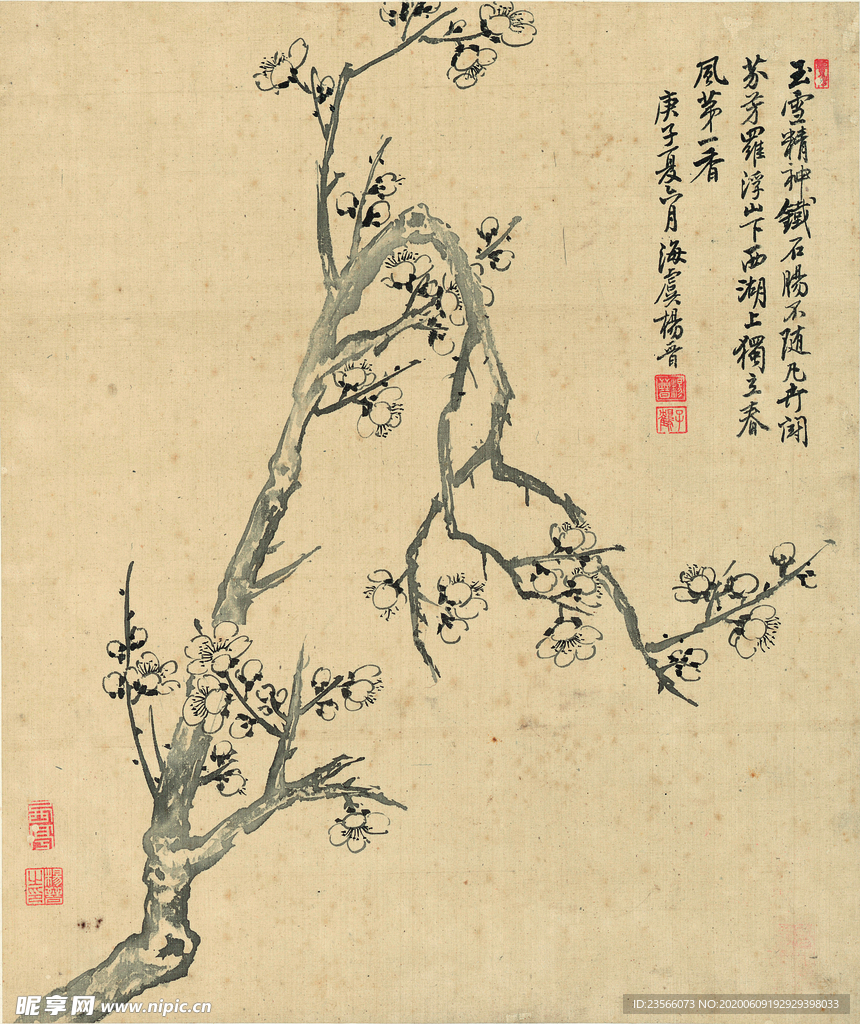 玉雪精神鐵石腸不随凡卉鬬
芬芳羅浮山下西湖上獨立春
風第一香
庚子夏六月海虞楊晋
昵享网 www.nipic.cn
ID:23566073 NO:20200609192929398033